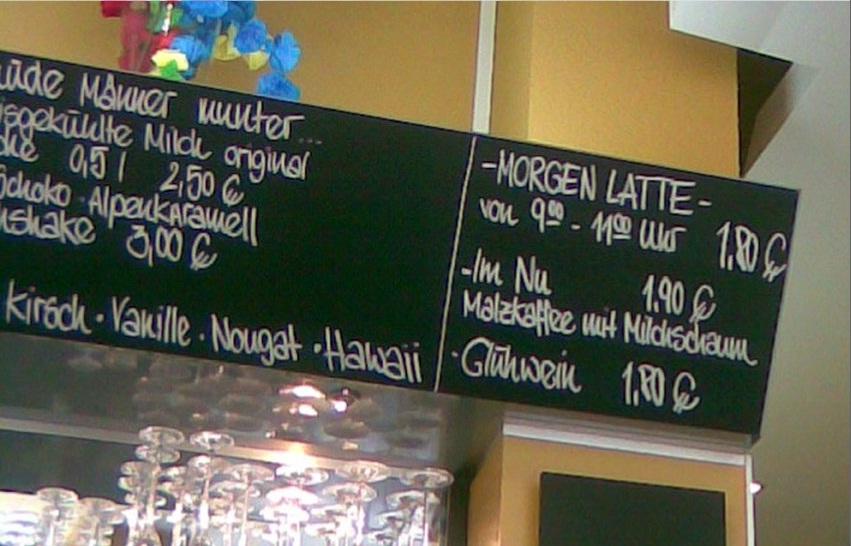 müde Männer munter...
isgekühlte Milch original
che 0,5 l 2,50 €
Schoko · Alpenkaramell
hshake 3,00 €
Kirsch · Vanille · Nougat · Hawaii
-MORGEN LATTE-
von 9⁰⁰ - 11⁰⁰ Uhr 1,80 €
-Im Nu 1,90 €
Malzkaffee mit Milchschaum
·Glühwein 1,80 €